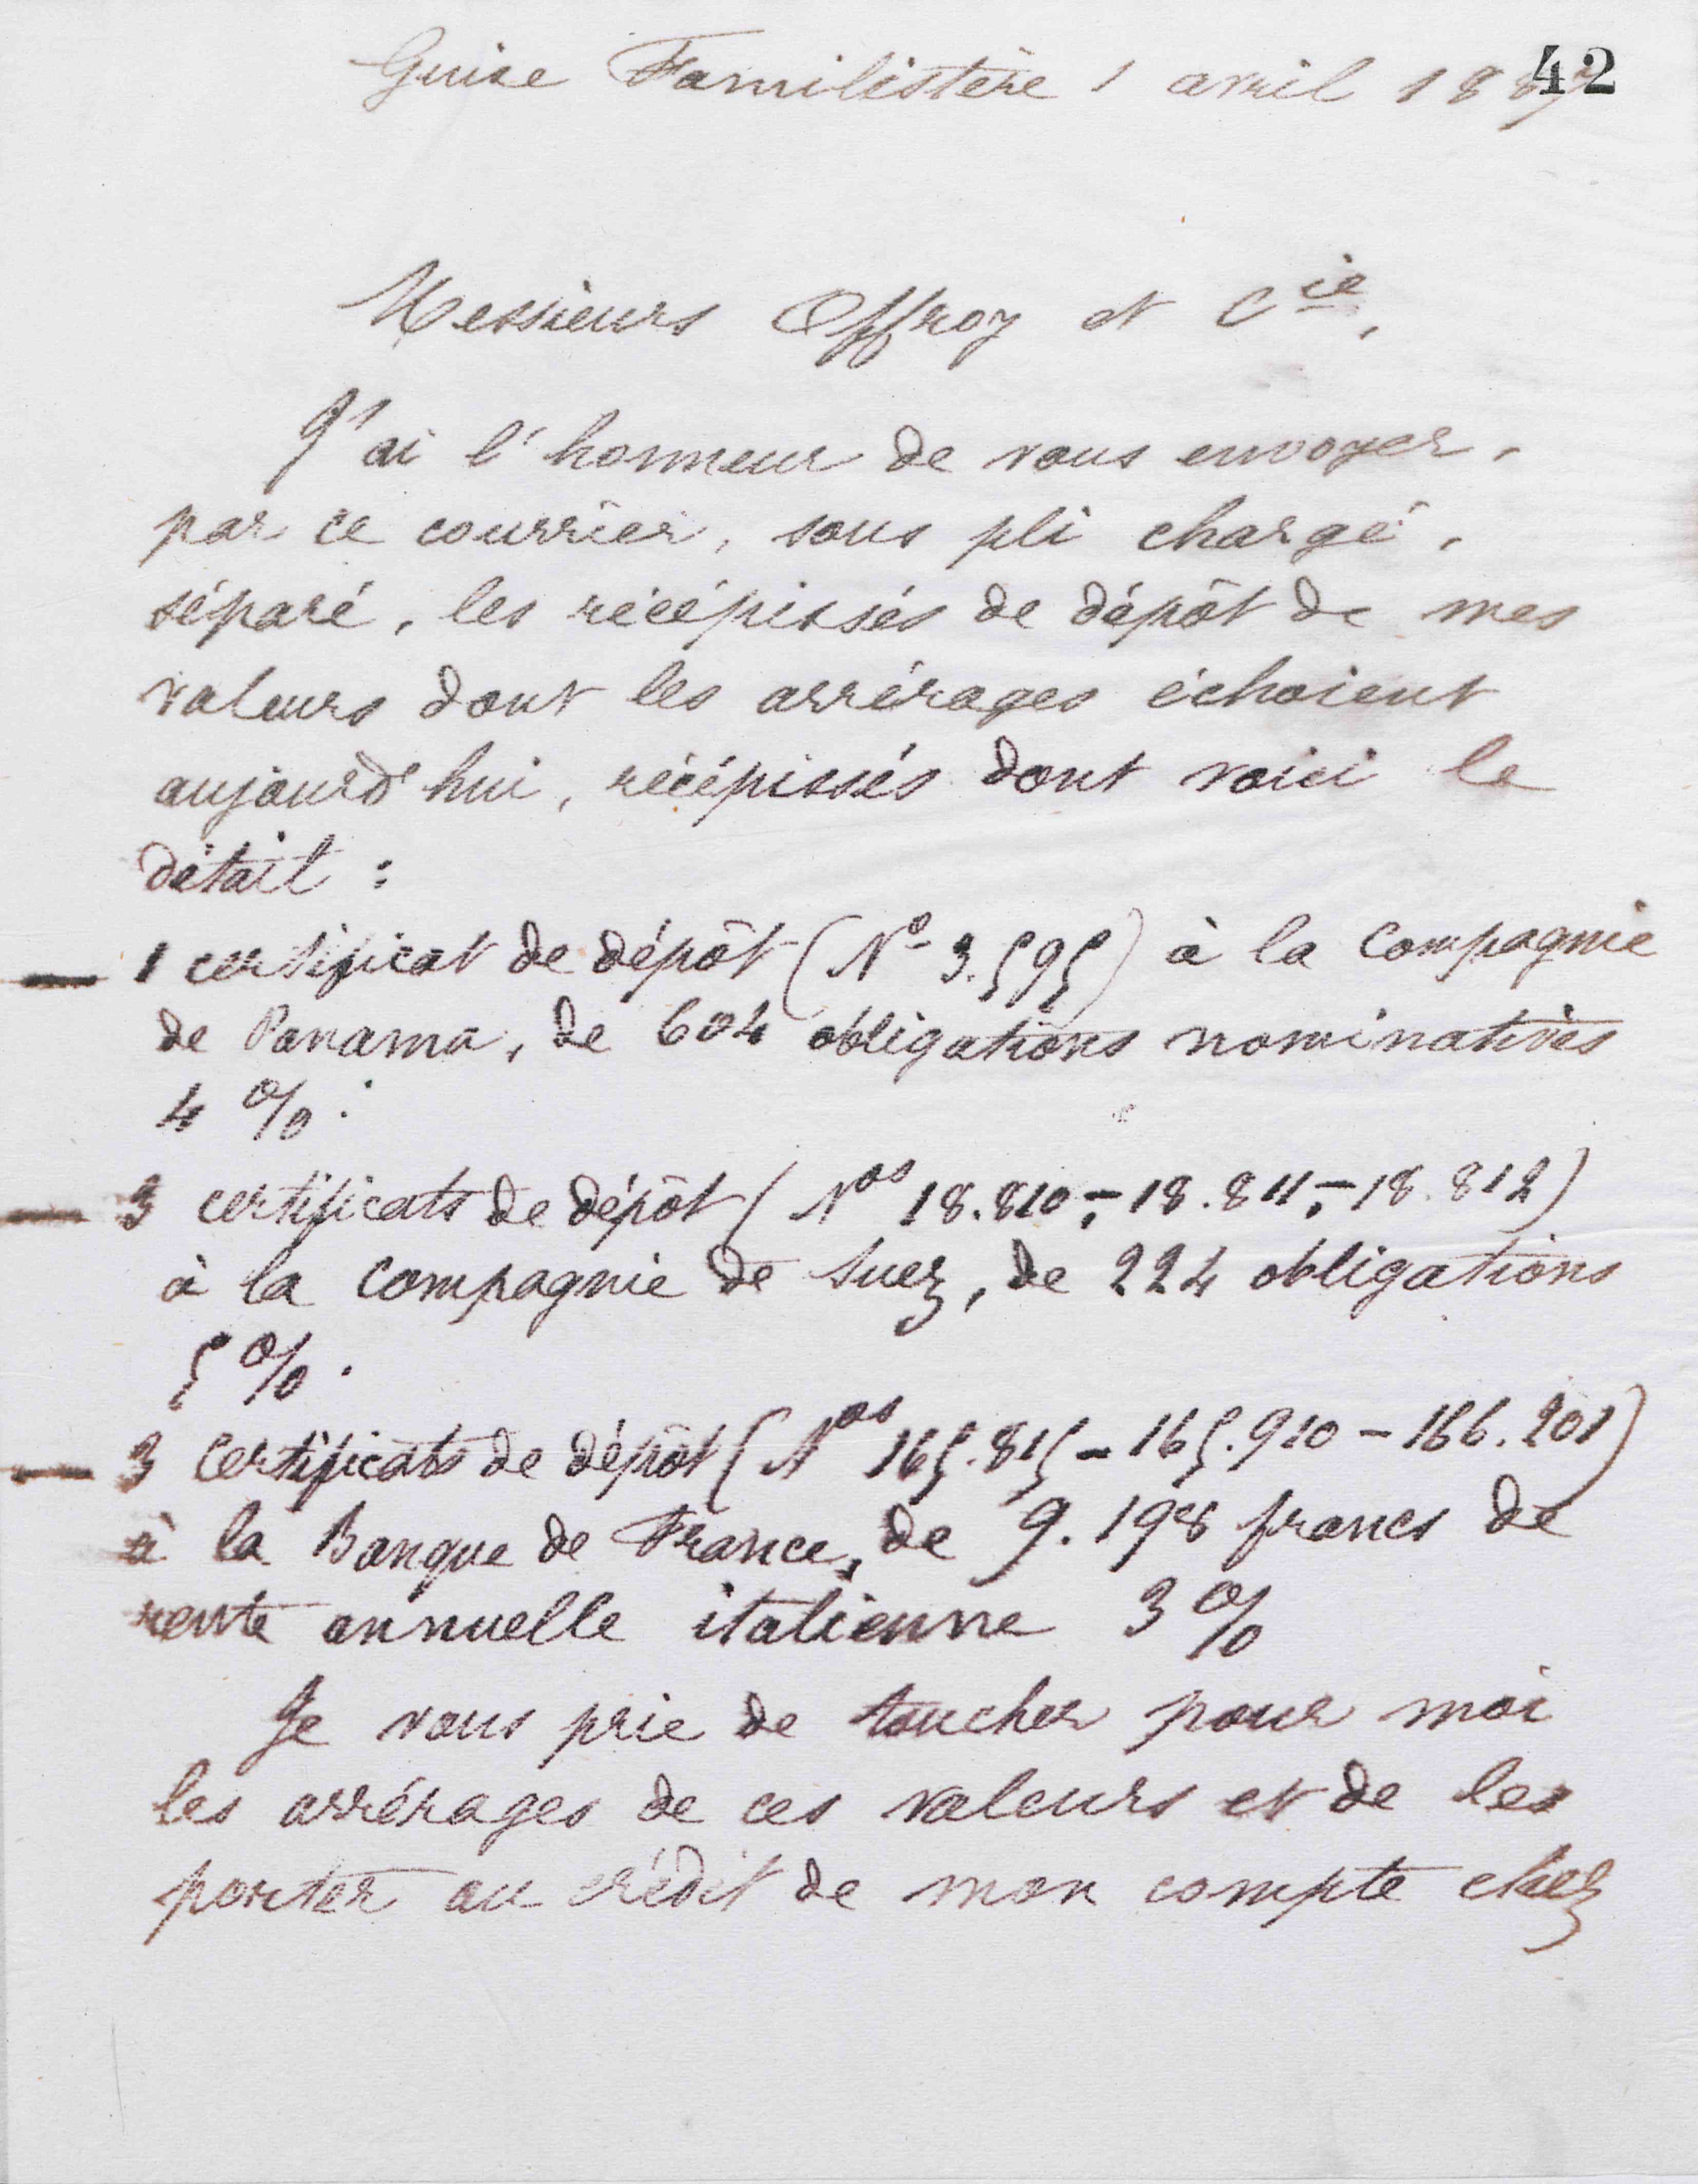 42
Guise Familistère 1 avril 188
Messieurs Offroy et Cie,
J'ai l'honneur de vous envoyer,
par ce courrier, sous pli chargé,
séparé, les récépissés de dépôt de mes
valeurs dont les arrérages échoient
aujourd'hui, récépissés dont voici le
détail :
— 1 certificat de dépôt (No 3.595) à la Compagnie
de Panama, de 604 obligations nominatives
4 %.
— 3 certificats de dépôt (Nos 18.810,- 18.811,- 18.812)
à la Compagnie de Suez, de 224 obligations
5 %.
— 3 certificats de dépôt (Nos 165.815 - 165.910 - 166.201)
à la Banque de France, de 9.198 francs de
rente annuelle italienne 3 %
Je vous prie de toucher pour moi
les arrérages de ces valeurs et de les
porter au crédit de mon compte chez